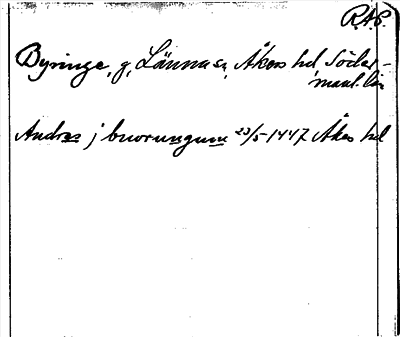 R.A.P.
Byringe, g, Länna sn, Åkers hd Söder-
manl. län
Andres j buorungum 23/5-1447 Åkers hd